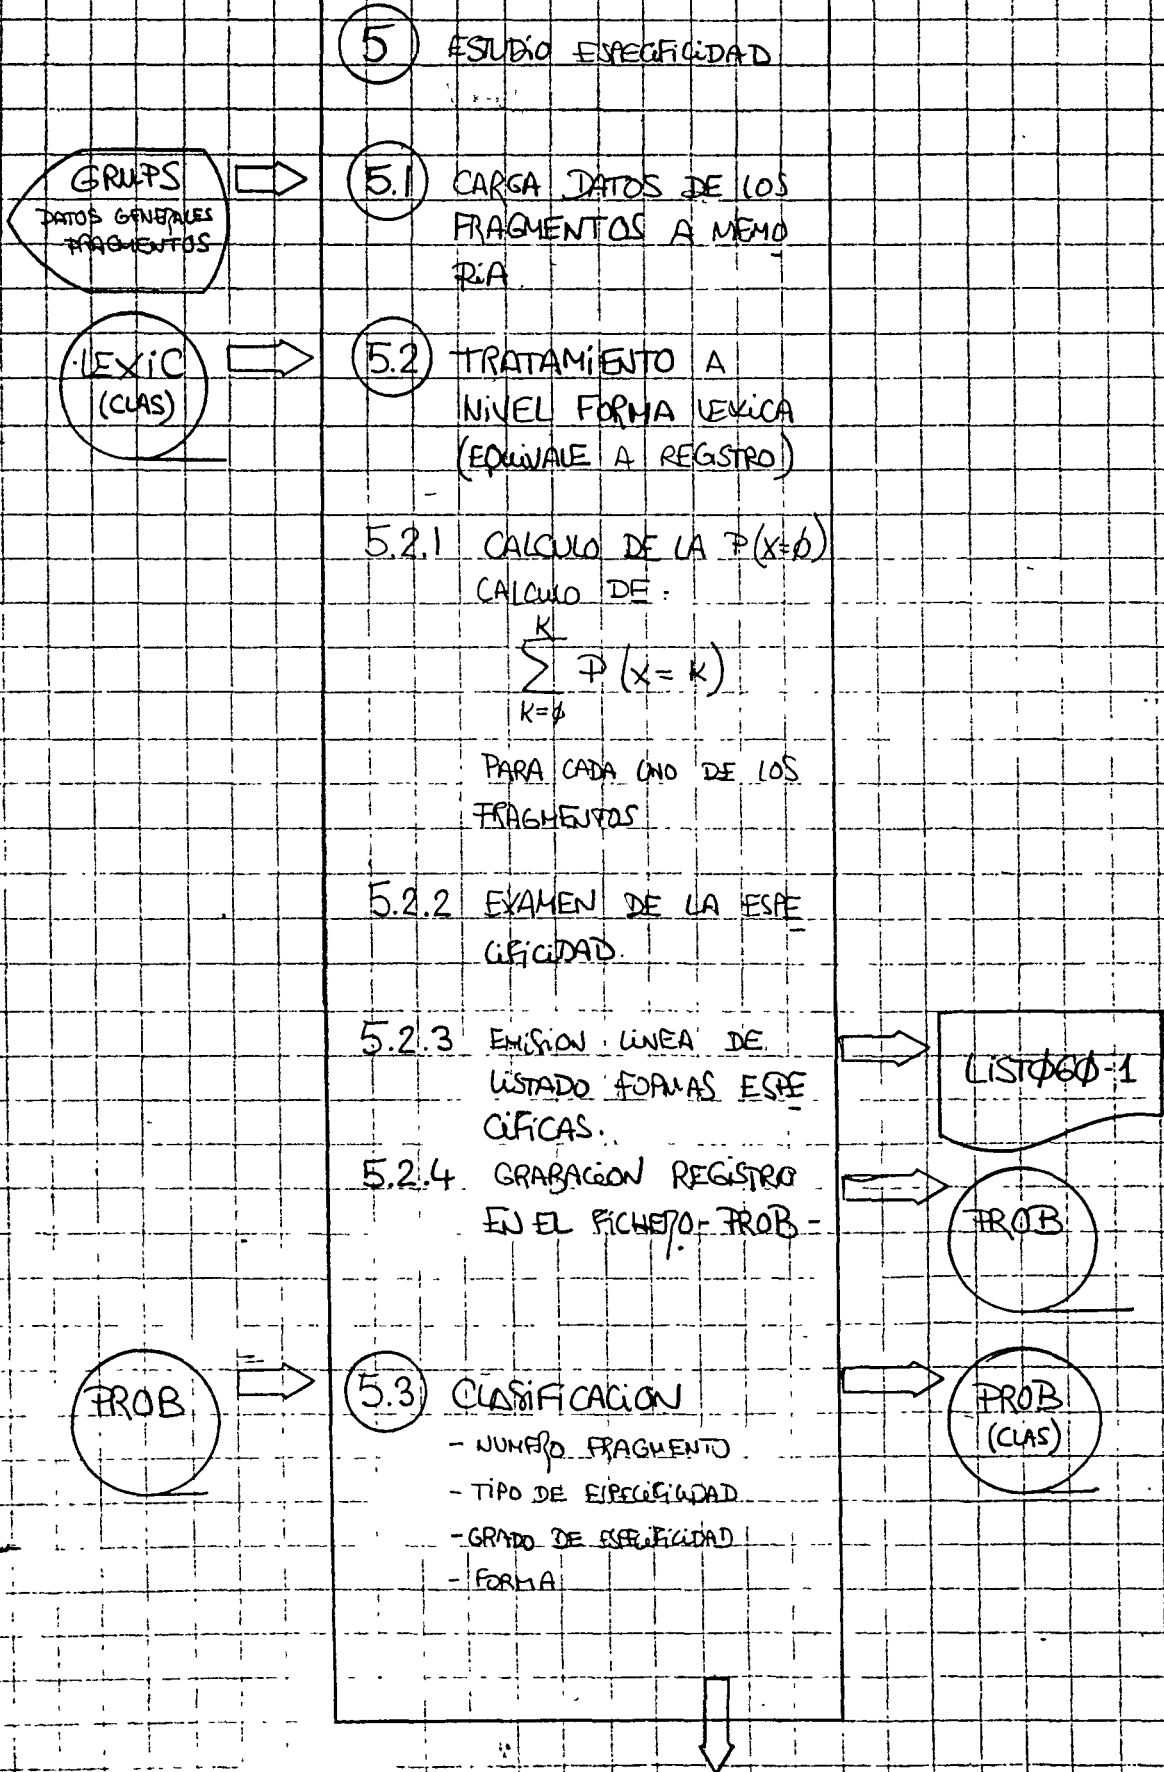 5 ESTUDIO ESPECIFICIDAD
GRUPS
DATOS GENERALES
FRAGMENTOS
5.1 CARGA DATOS DE LOS
FRAGMENTOS A MEMO
RIA.
LEXIC
(CLAS)
5.2 TRATAMIENTO A
NIVEL FORMA LEXICA
(EQUIVALE A REGISTRO)
5.2.1 CALCULO DE LA P(X=φ)
CALCULO DE:
K
∑ P (X = K)
K=φ
PARA CADA UNO DE LOS
FRAGMENTOS
5.2.2 EXAMEN DE LA ESPE
CIFICIDAD.
5.2.3 EMISION LINEA DE
LISTADO FORMAS ESPE
CIFICAS.
LISTφ6φ-1
5.2.4 GRABACION REGISTRO
EN EL FICHERO - PROB -
PROB
PROB
5.3 CLASIFICACION
- NUMERO FRAGMENTO
- TIPO DE ESPECIFICIDAD
- GRADO DE ESPECIFICIDAD
- FORMA
PROB
(CLAS)